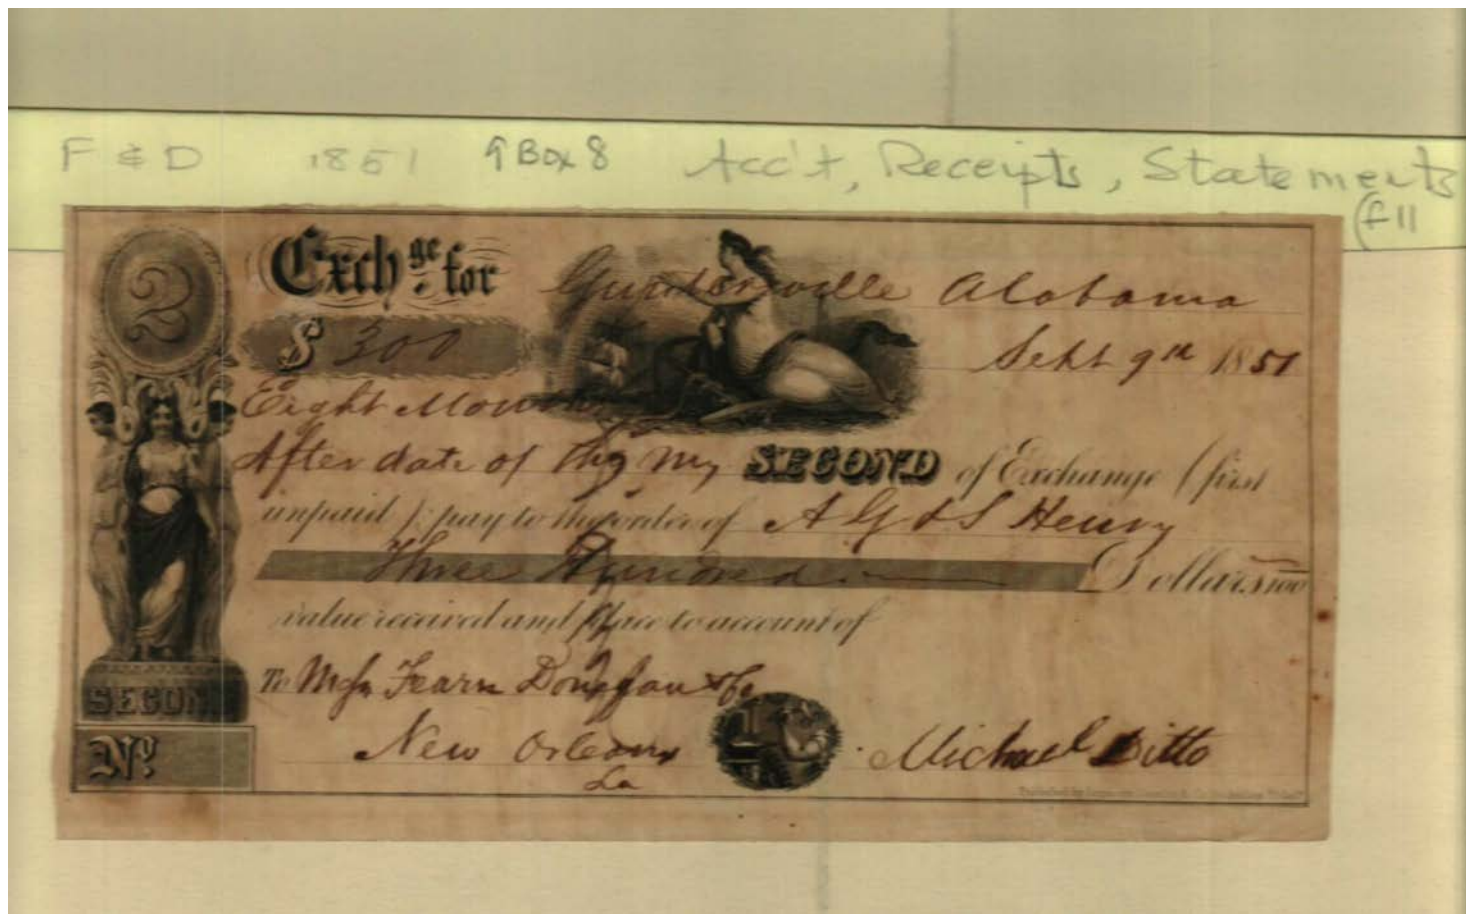 F & D 1851 9 Box 8 Acc't, Receipts, Statements
(f 11
2
Exchge. for Guntersville Alabama
$ 300
Sept 9th 1851
Eight Months
After date of this my SECOND of Exchange (first
unpaid) pay to the order of A G & S Henry
Three Hundred Dollars 100
value received and place to account of
To Mess Fearn Donegan & Co
SECOND
New Orleans
La
Michael Ditto
No.